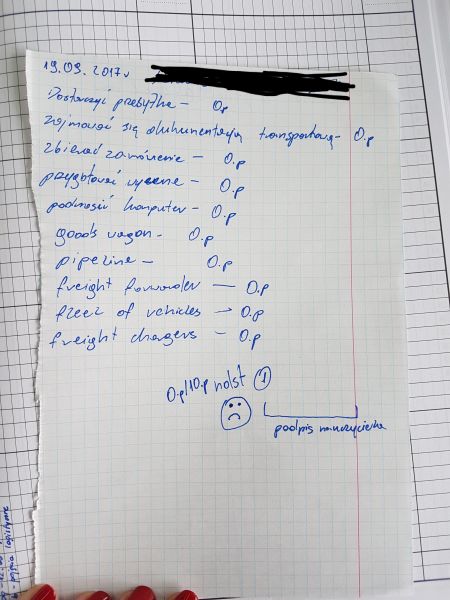 19.09.2017r
Dostarczyć przesyłkę – 0p
zajmować się dokumentacją transportową – 0.p
zbierać zamówienie – 0.p
przygotować wycene – 0.p
podnosić komputer – 0.p
goods wagon – 0.p
pipeline – 0.p
freight forwarder — 0.p
fleet of vehicles – 0.p
freight chargers – 0.p
0.p/10.p ndst 1
podpis nauczyciela